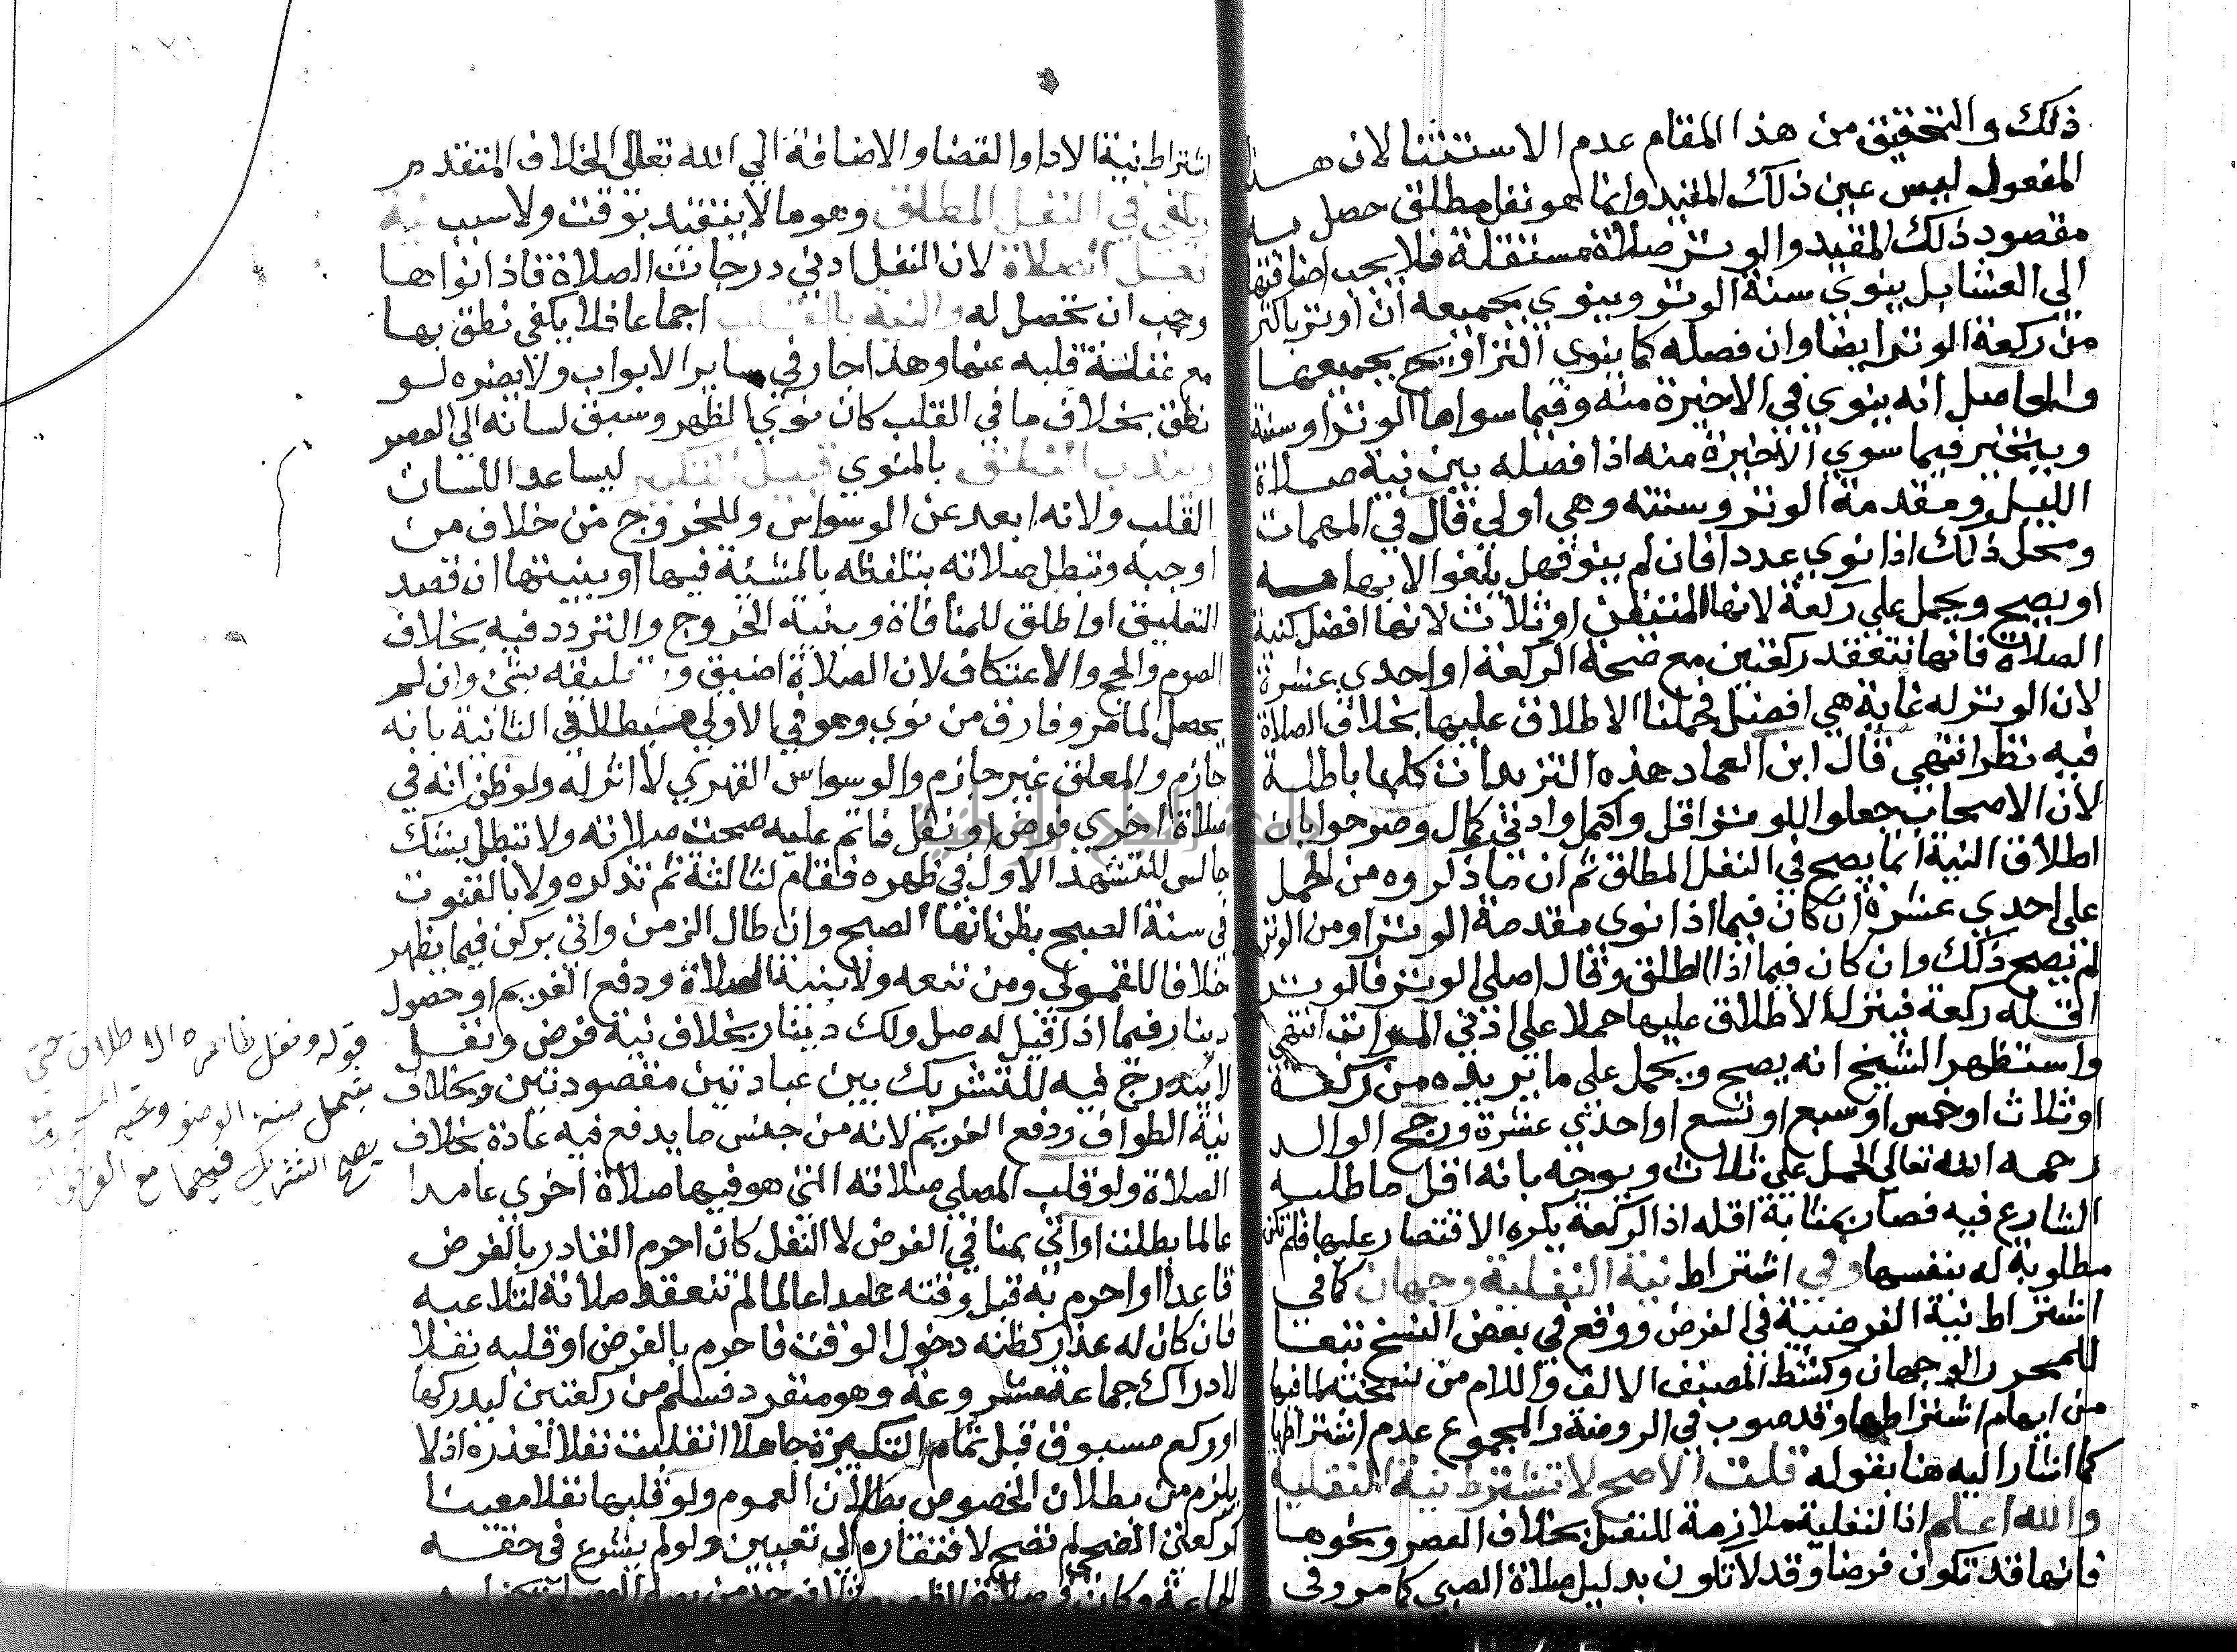 ذلك والتحقيق من هذا المقام عدم الاستثنا لان هذا
المفعول ليس عين ذلك المقيد وانما هو نفل مطلق حصل به
مقصود ذلك المقيد والوتر صلاة مستقلة فلا يجب اضافتها
الي العشا بل ينوي سنة الوتر وينوي بجميعه ان اوتر باكثر
من ركعة الوتر ايضا وان فصله كما ينوي التراويح بجميعها
والحاصل انه ينوي في الاخيرة منه وفيما سواها الوتر او سنته
ويتخير فيما سوي الاخيرة منه اذا فصله بين نية صلاة
الليل ومقدمة الوتر وسنته وهي اولي قال في المهمات
ومحل ذلك اذا نوي عددا فان لم ينو فهل يلغوا لابهامه
او يصح ويحمل علي ركعة لانها المتيقن او ثلاث لانها افضل كنية
الصلاة فانها تنعقد ركعتين مع صحة الركعة او احدي عشرة
لان الوتر له غاية هي افضل فحملنا الاطلاق عليها بخلاف الصلاة
فيه نظر انتهي قال ابن العماد هذه الترديدات كلها باطلة
لان الاصحاب جعلوا للوتر اقل واكمل وادني كمال وصرحوا بان
اطلاق النية انما يصح في النفل المطلق ثم ان ما ذكروه من الحمل
علي احدي عشرة ان كان فيما اذا نوي مقدمة الوتر او من الوتر
لم يصح ذلك وان كان فيما اذا اطلق وقال اصلي الوتر فالوتر
اقله ركعة فينزل الاطلاق عليها حملا علي ادني المراتب انتهي
واستظهر الشيخ انه يصح ويحمل علي ما يريده من ركعة
او ثلاث او خمس او سبع او تسع او احدي عشرة ورجح الوالد
رحمه الله تعالي الحمل علي ثلاث ويوجه بانه اقل ما طلبه
الشارع فيه فصار بمثابة اقله اذ الركعة يكره الاقتصار عليها فلم تكن
مطلوبة له بنفسها وفي اشتراط نية النفلية وجهان كما في
اشتراط نية الفرضية في الفرض ووقع في بعض النسخ تبعا
للمحرر الوجهان وكشط المصنف الالف واللام من نسخته لما فيها
من ايهام اشتراطها وقد صوب في الروضة والمجموع عدم اشتراطها
كما اشار اليه هنا بقوله قلت الاصح لا تشترط نية النفلية
والله اعلم اذ النفلية ملازمة للنفل بخلاف العصر ونحوها
فانها قد تكون فرضا وقد لا تكون بدليل صلاة الصبي كما مر وفي
اشتراط نية الادا والقضا والاضافة الي الله تعالي الخلاف المتقدم
ويكفي في النفل المطلق وهو ما لا يتقيد بوقت ولا سبب نية
فعل الصلاة لان النفل ادني درجات الصلاة فاذا نواها
وجب ان تحصل له والنية بالقلب اجماعا فلا يكفي نطق بها
مع غفلة قلبه عنها وهذا جار في ساير الابواب ولا يضره لو
نطق بخلاف ما في القلب كان نوي الظهر وسبق لسانه الي العصر
ويندب النطق بالمنوي قبيل التكبير ليساعد اللسان
القلب ولانه ابعد عن الوسواس وللخروج من خلاف من
اوجبه وتبطل صلاته بتلفظه بالمشية فيها او بنيتها ان قصد
التعليق او اطلق للمنافاة وبنية الخروج والتردد فيه بخلاف
الصوم والحج والاعتكاف لان الصلاة اضيق وتعليقه بشي وان لم
يحصل لما مر وفارق من نوي وهو في الاولي مبطلا في الثانية بانه
جازم والمعلق غير جازم والوسواس القهري لا اثر له ولو ظن انه في
صلاة اخري فرض او نفل فاتم عليه صحت صلاته ولا تبطل بشك
جالس للتشهد الاول في ظهره فقام لثالثة ثم تذكره ولا بالقنوت
في سنة الصبح يظن انها الصبح وان طال الزمن واتي بركن فيما يظهر
خلافا للقمولي ومن تبعه ولا بنية الصلاة ودفع الغريم او حصول
دينار فيما اذا قيل له صل ولك دينار بخلاف نية فرض ونفل
لا يندرج فيه للتشريك بين عبادتين مقصودتين وبخلاف
نية الطواف ودفع الغريم لانه من جنس ما يدفع فيه عادة بخلاف
الصلاة ولو قلب المصلي صلاته التي هو فيها صلاة اخري عامدا
عالما بطلت او اتي بمنافي الفرض لا النفل كان احرم القادر بالفرض
قاعدا او احرم به قبل وقته عامدا عالما لم تنعقد صلاته لتلاعبه
فان كان له عذر كظنه دخول الوقت فاحرم بالفرض او قلبه نفلا
لادراك جماعة مشروعة وهو منفرد فسلم من ركعتين ليدركها
او ركع مسبوق قبل تمام التكبيرة جاهلا انقلبت نفلا لعذره اذ لا
يلزم من بطلان الخصوص بطلان العموم ولو قلبها نفلا معينا
كركعتي الضحي لم تصح لافتقاره الي تعيين ولو لم يشرع في حقه
الجماعة وكان في صلاة الظهر
قوله ونفل ظاهره الاطلاق حتي
يشمل سنة الوضو وتحية المسجد
يصح التشريك فيهما مع الفرض